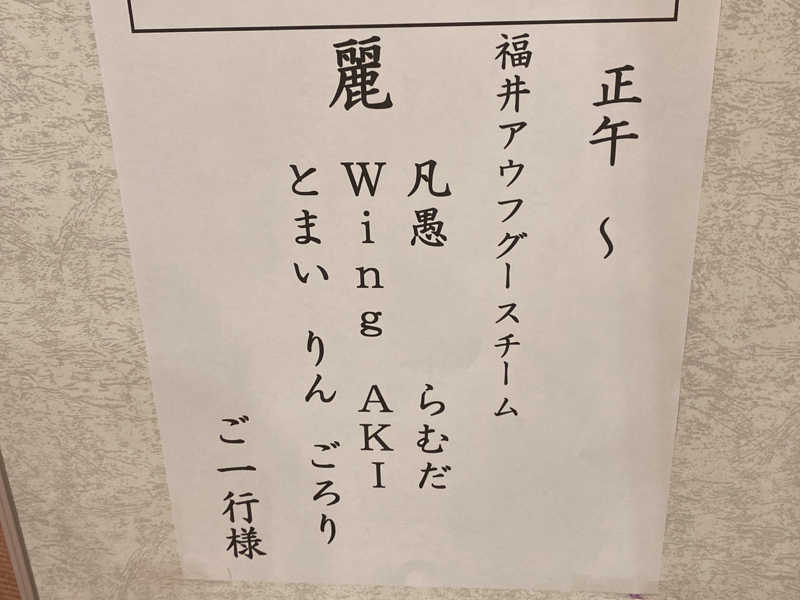 正午 ～
福井アウフグースチーム
麗
凡愚 らむだ
Wing AKI
とまい りん ごろり
ご一行様